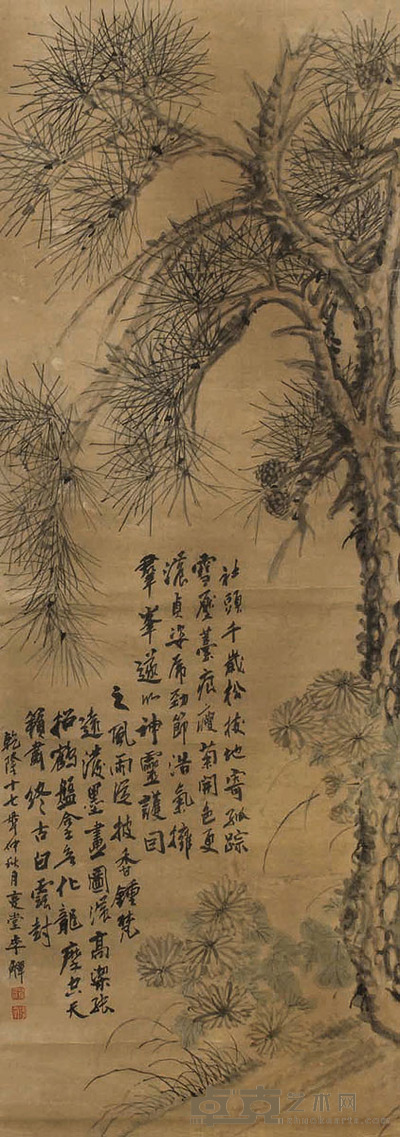 社頭千歲松拔地寄孤踪
雪壓薹痕瘦菊開色更
濃貞姿席勁節浩氣擁
羣峯遂以神靈護因
之風雨從披香鍾梵
遠潑墨畫圖濃高梁張
招鶴盤全化龍摩天
籟肅終古白雲封
乾隆十七年仲秋月李
艺术网